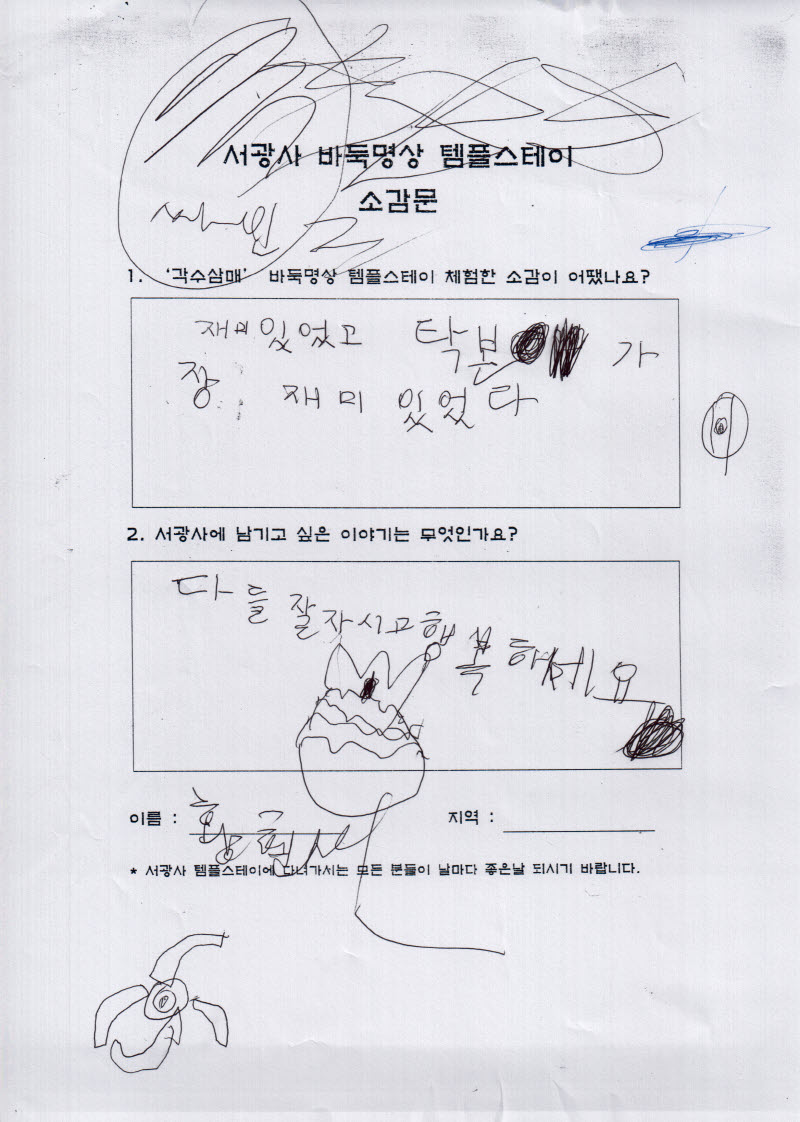 서광사 바둑명상 템플스테이
소감문
싸인
1. ‘각수삼매’ 바둑명상 템플스테이 체험한 소감이 어땠나요?
재미있었고 탁본 가
장 재미 있었다
2. 서광사에 남기고 싶은 이야기는 무엇인가요?
다들 잘자시고 행복하세요
이름 : 지역 :
* 서광사 템플스테이에 다녀가시는 모든 분들이 날마다 좋은날 되시기 바랍니다.